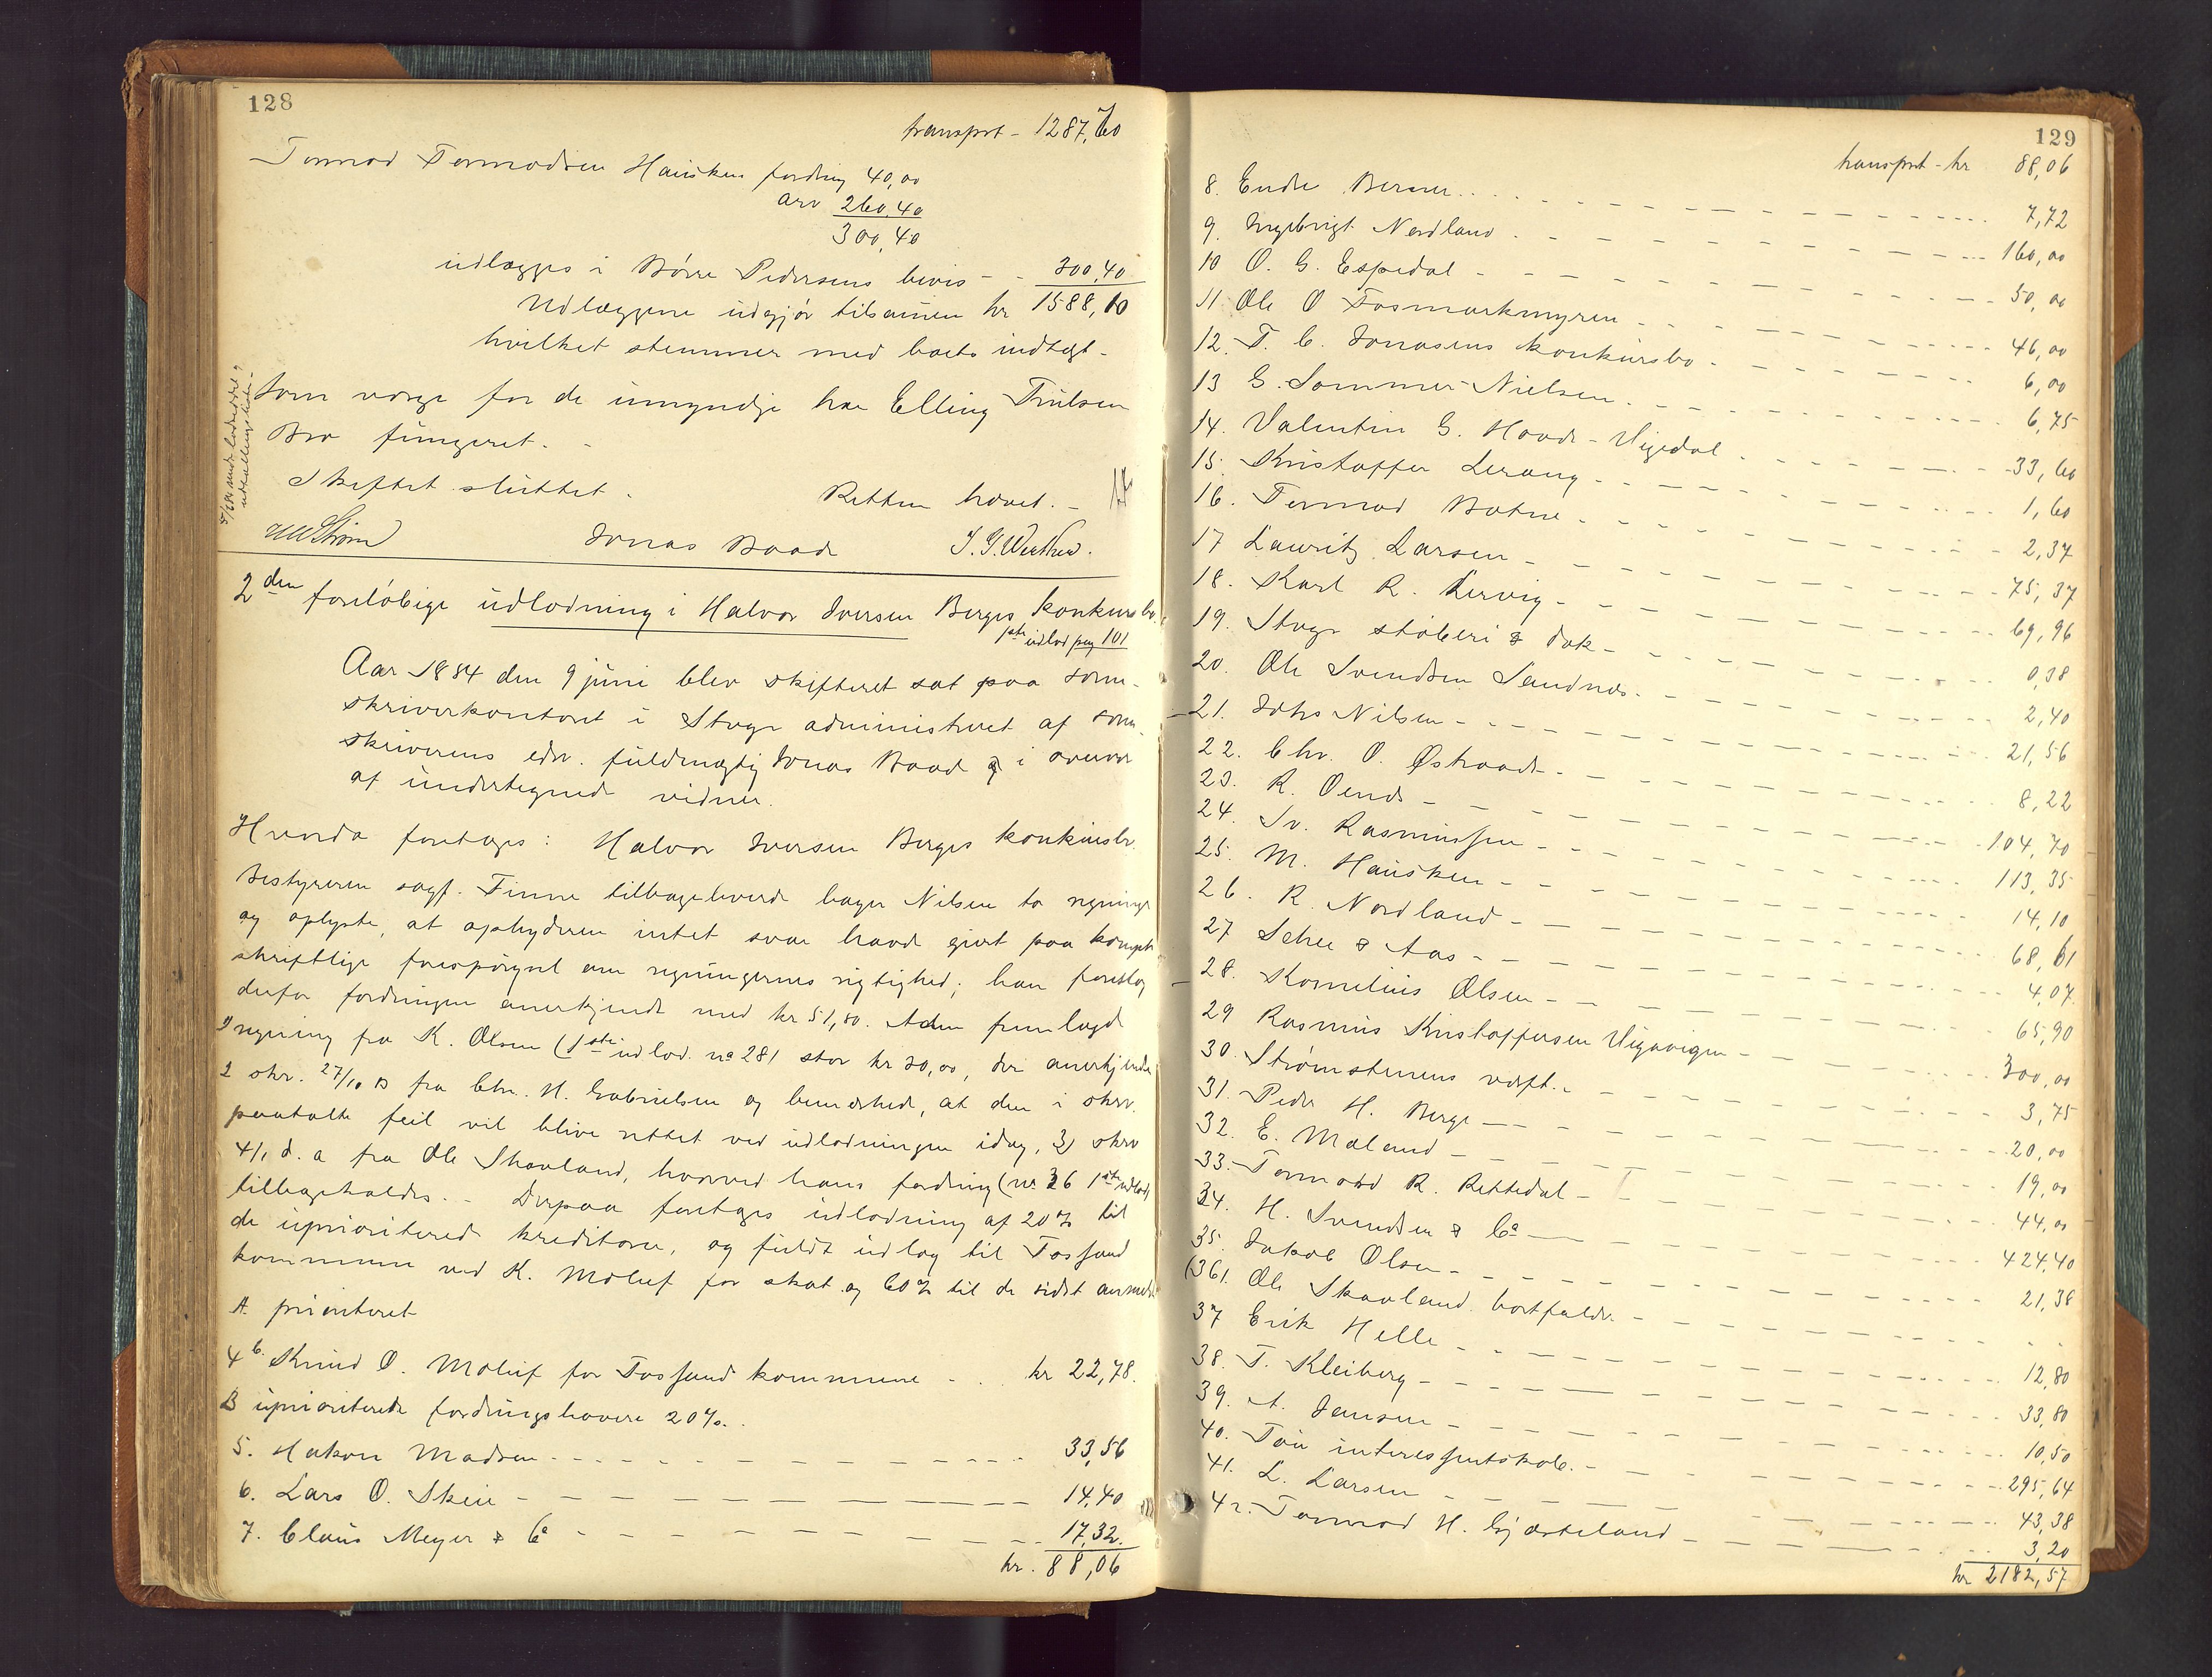 128
transport - 1287,70
Tormod Tormodsen Hausken fordring 40,00
arv 260,40
300,40
udlægges i Børre Pedersens bevis - - 300,40
Udlæggene udgjør tilsamen kr 1588,10
hvilket stemmer med boets indtægt.
Som værge for de umyndige har Elling Trulsen
Bro fungeret. -
Skiftet sluttet. Retten hævet. -
Jonas Baade
2den foreløbige udlodning i Halvor Iversen Berges konkursbo.
1ste udlod pag 101
Aar 1884 den 9 juni blev skifteret sat paa soren-
skriverkontoret i Stavgr administreret af soren-
skriverens edsv. fuldmægtig Jonas Baade i overvær
af undertegnede vidner.
Hvorda foretages: Halvor Iversen Berges konkursbo.
Bestyreren sagf. Finne tilbageleverede bager Nilsens to regninger
og oplyste, at opbyderen intet svar havde givet paa
skriftlige forespørgsel om regningernes rigtighed; han foreslog
derfor fordringen anerkjendt med kr 51,80. Aden fremlagde
regning fra K. Olsen (1ste udlod. no 28) stor kr 30,00, der anerkjendes
2 skr. 27/10 83 fra Chr. H. Gabrielsen og bemærkede, at den i skrv.
paatalte feil vil blive rettet ved udlodningen idag, 3) skrv
4/1 d. a fra Ole Skaaland, hvorved hans fordring (no 36 1ste udlod)
tilbageholdes. - Derpaa foretages udlodning af 20% til
de uprioriterede kreditorer, og fuldt udlæg til Fossand
kommune ved K. Meluf for skat og 60% til de sidst anmeldte
A. prioriteret
4b. Knud O. Meluf for Fossand kommune - . . kr 22,78.
B uprioriterede fordringshavere 20%. .
5. Hakon Madsen - - - 33,56
6. Lars O. Skeie - - - 14,40
7. Claus Meyer & Co - - - 17,32.
kr. 88,06
129
transport - kr 88,06
8. Endre Berner - - - 7,72
9. Ingebrigt Nordland - - - 160,00
10 O. G. Espedal - - - 50,00
11 Ole O Fosmarkmyren - - - 46,00
12. T. C. Jonasens konkursbo - - - 6,00
13 G. Sømme-Nielsen - - - 6,75
14. Valentin G. Hoode-Vigedal - - - 33,60
15. Kristoffer Lerang - - - 1,60
16. Tormod Botne - - - 2,37
17 Lauritz Larsen - - - 75,37
18. Karl R. Kervig - - - 69,96
19. Stvgr støberi & dok - - - 0,38
20. Ole Svendsen Sandnes - - - 2,40
21. Johs Nilsen - - - 21,56
22. Chr. O. Østraadt - - - 8,22
23. R. Oends - - - 104,70
24. Sv. Rasmussen - - - 113,35
25. M. Hausken - - - 14,10
26. R. Nordland - - - 68,61
27 Schee & Aas - - - 4,07.
28. Kornelius Olsen - - - 65,90
29 Rasmus Kristoffersen Vigavigen - - - 300,00
30. Strømstenens værft - - - 3,75
31. Peder H. Berge - - - 20,00
32. E. Mæland - - - 19,00
33. Tormod R. Rettedal - - - 44,00
34. H. Svendsen & Co - - - 424,40
35. Jakob Olsen - - - 21,38
(36). Ole Skaaland. bortfalder - - -
37 Erik Helle - - - 12,80
38. T. Kleiberg - - - 33,80
39. A. Jansen - - - 10,50
40. Tou interessentskab. - - - 295,64
41. L. Larsen - - - 43,38
42. Tormod H. Gjæsteland - - - 3,20
kr 2182,57